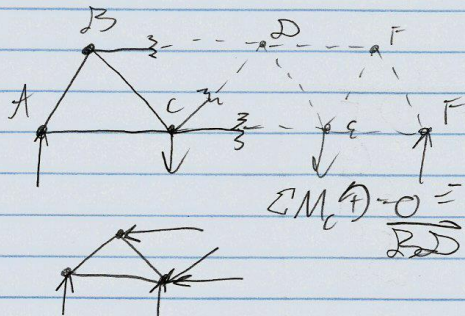 B
D
F
A
C
E
F
ΣM_C ↶+ = 0 =
BD